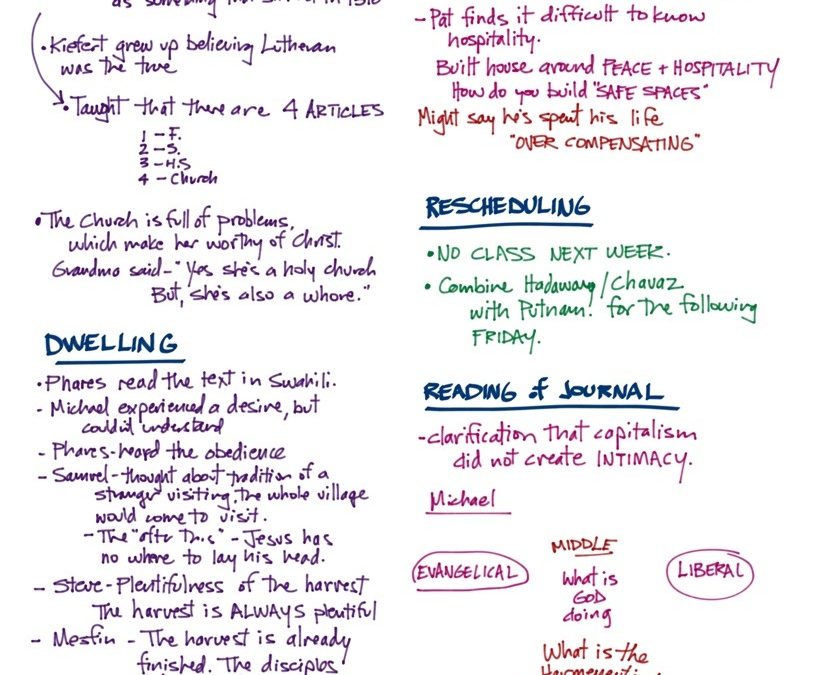 as something that
• Kiefert grew up believing Lutheran
was the true
• Taught that there are 4 ARTICLES
1 - F.
2 - S.
3 - H.S
4 - Church
• The Church is full of problems,
which make her worthy of Christ.
Grandma said - "Yes she's a holy church
But, she's also a whore."
DWELLING
• Phares read the text in Swahili.
- Michael experienced a desire, but
could't understand
- Phares - heard the obedience
- Samuel - thought about tradition of a
stranger visiting, the whole village
would come to visit.
- The "after this" - Jesus has
no where to lay his head.
- Steve - Plentifulness of the harvest
The harvest is ALWAYS plentiful
- Mesfin - The harvest is already
finished. The disciples
- Pat finds it difficult to know
hospitality.
Built house around PEACE + HOSPITALITY
How do you build "SAFE SPACES"
Might say he's spent his life
"OVER COMPENSATING"
RESCHEDULING
• NO CLASS NEXT WEEK.
• Combine Hadaway/Chavaz
with Putnam! for the following
FRIDAY.
READING of JOURNAL
- clarification that capitalism
did not create INTIMACY.
Michael
EVANGELICAL
MIDDLE
What is
GOD
doing
LIBERAL
What is the